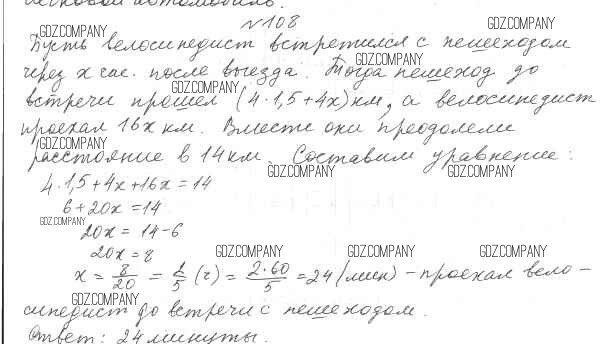 легковой автомобиль.
№108
Пусть велосипедист встретился с пешеходом
через x час. после выезда. Тогда пешеход до
встречи прошел (4·1,5+4x) км, а велосипедист
проехал 16x км. Вместе они преодолели
расстояние в 14 км. Составим уравнение:
4·1,5+4x+16x=14
6+20x=14
20x=14-6
20x=8
x = 8/20 = 2/5 (г) = 2·60/5 = 24 (мин) - проехал вело-
сипедист до встречи с пешеходом.
Ответ: 24 минуты.
GDZ.COMPANY
GDZ.COMPANY
GDZ.COMPANY
GDZ.COMPANY
GDZ.COMPANY
GDZ.COMPANY
GDZ.COMPANY
GDZ.COMPANY
GDZ.COMPANY
GDZ.COMPANY
GDZ.COMPANY
GDZ.COMPANY